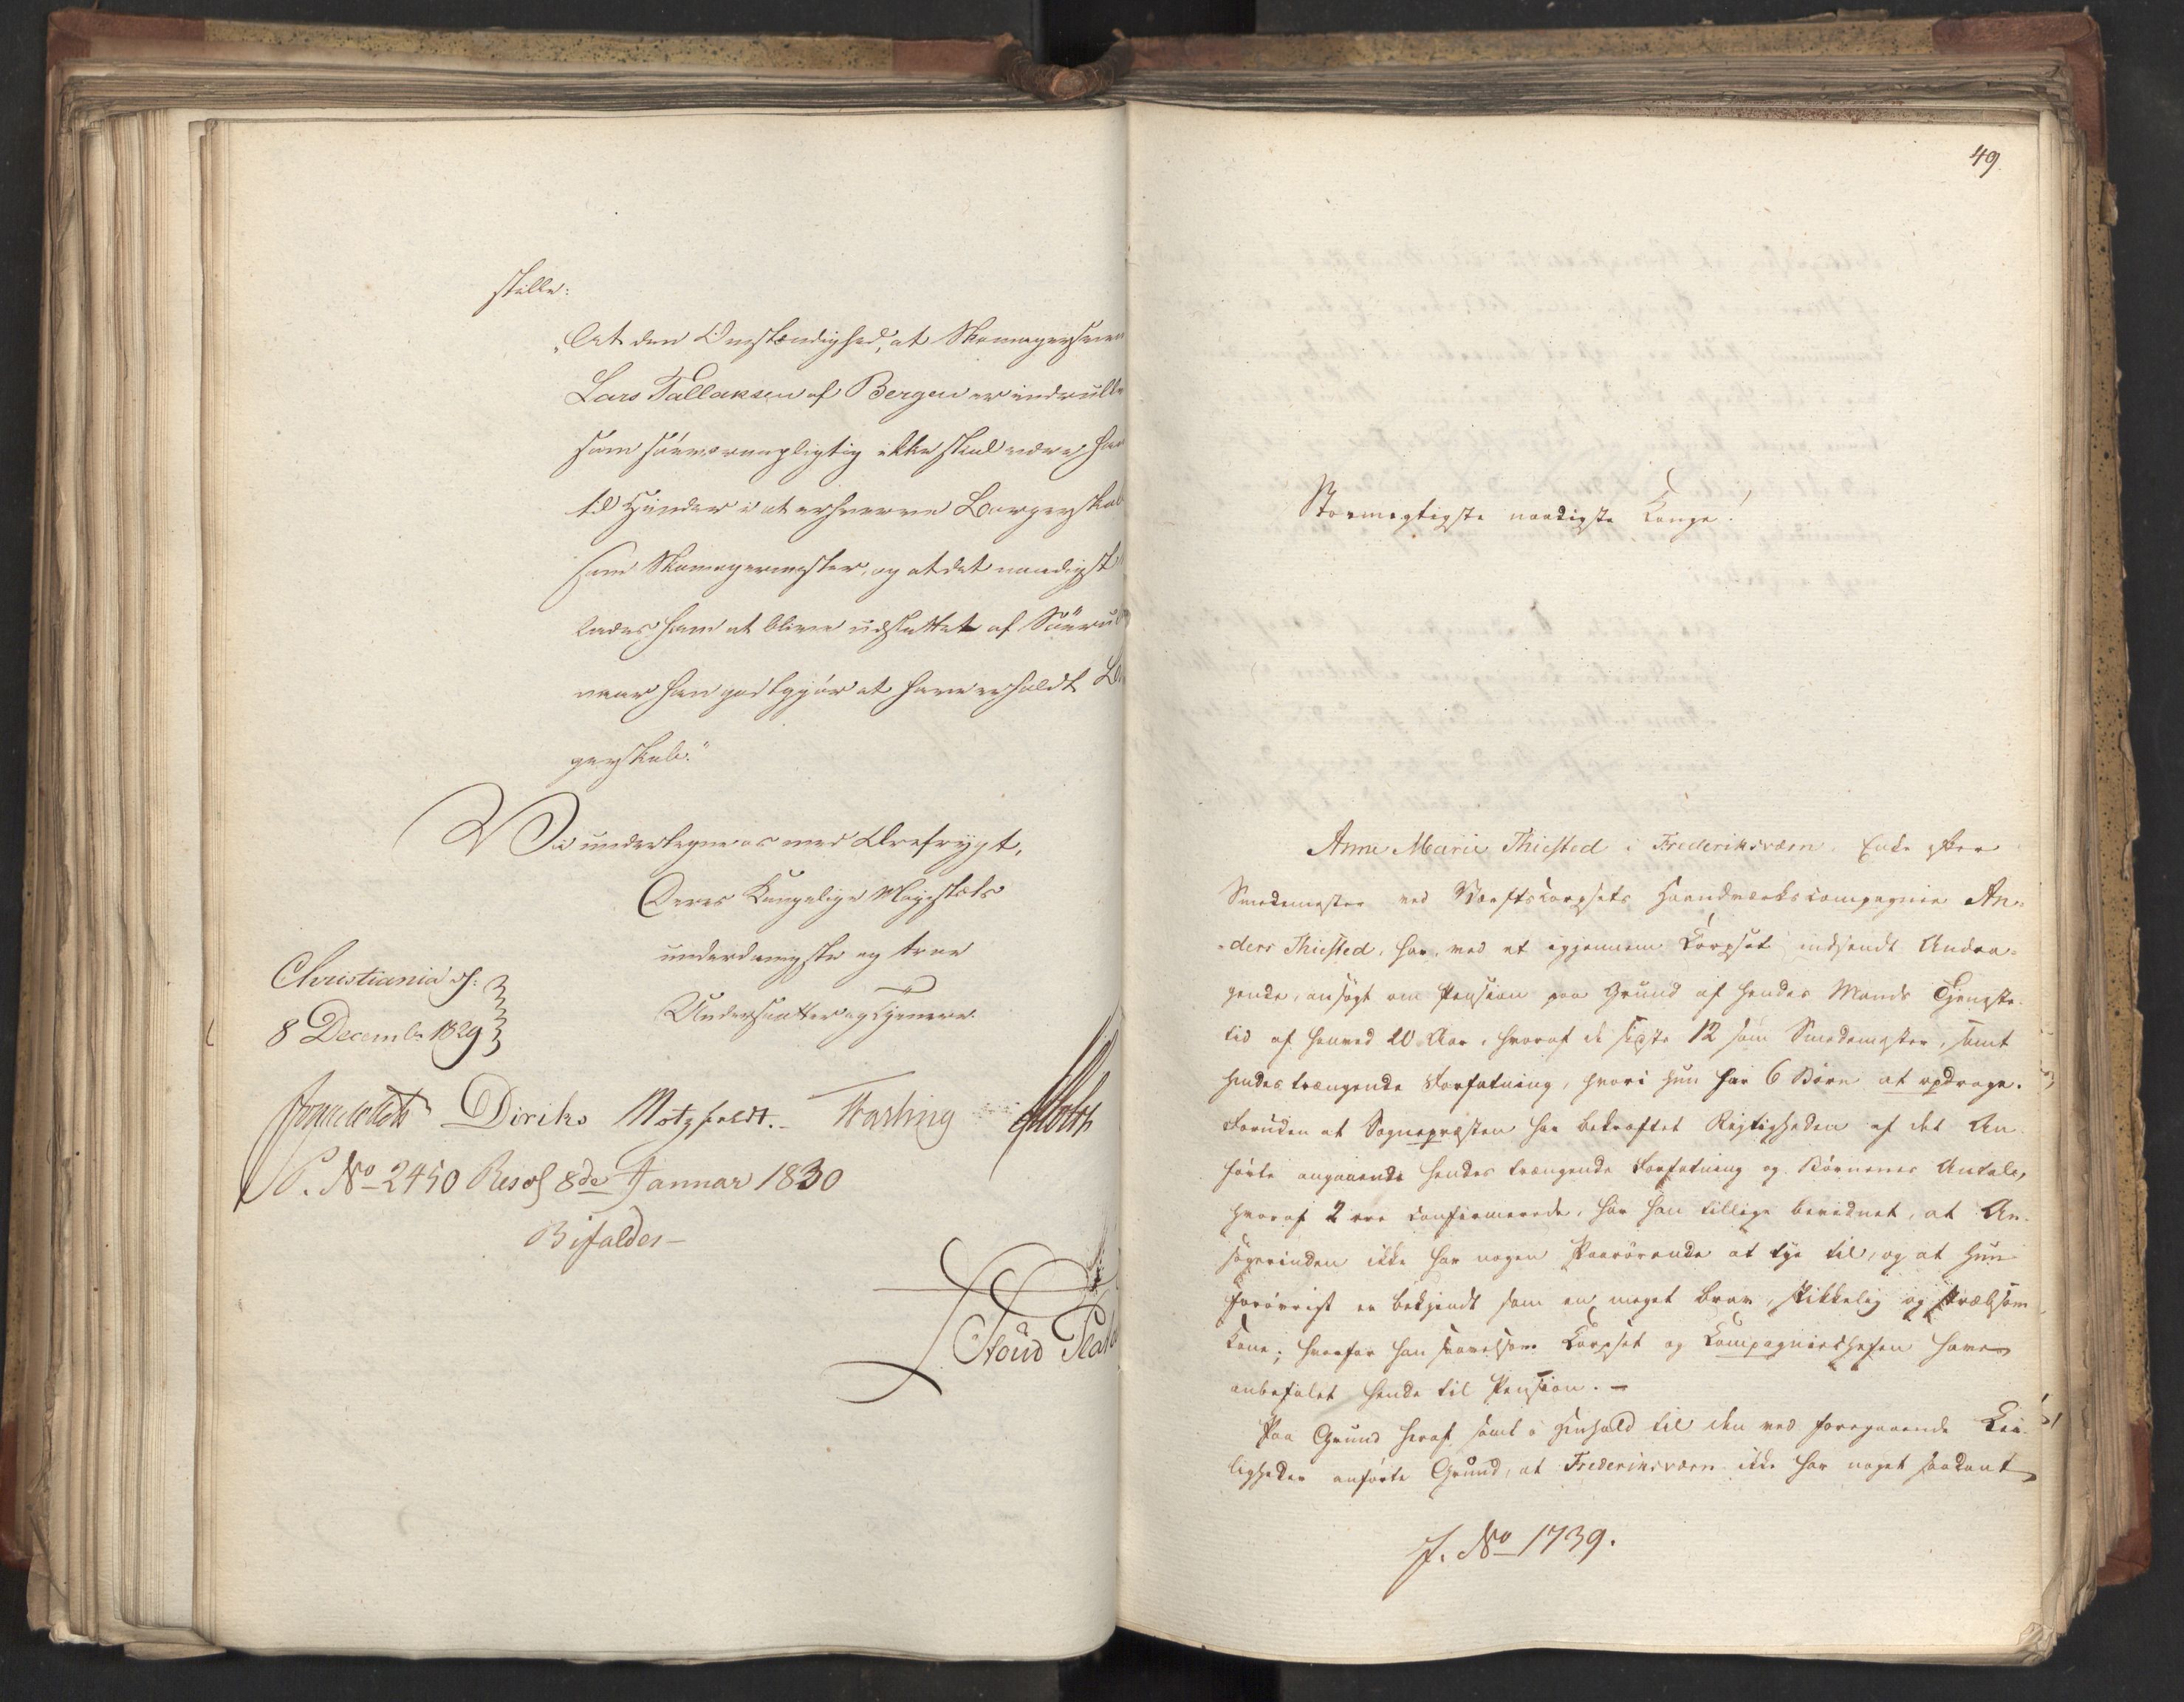 stille:
"At den Omstændighed, at Skomagersven
Lars Tallaksen af Bergen er indrulle
som søeværnepligtig ikke skal være ham
til Hinder i at erhverve Borgerskab
som Skomagermester, og at det naadigst
lades ham at blive udslettet af Søerul
naar han godtgjør at have erholdt Bor
gerskab."
Vi undertegne os med Ærefrygt,
Deres Kongelige Majestæts
underdanigste og troe
Undersaatter og Tjenere.
Christiania d:
8 Decembr 1829
Diriks Motzfeldt. Fasting Holst
P. No 2450 Resol 8de Januar 1830
Bifaldes
49
Stormægtigste naadigste Konge!
Anne Marie Thiested i Frederiksværn, Enke efter
Smedemester ved Værftscorpsets Haandværkscompagnie An-
ders Thiested, har, ved et igjennem Corpset indsendt Andra-
gende, ansøgt om Pension paa Grund af hendes Mands Tjeneste-
tid af henved 20 Aar, hvoraf de sidste 12 som Smedemester, samt
hendes trængende Forfatning, hvori hun har 6 Børn at opdrage.
Foruden at Sognepræsten har bekræftet Rigtigheden af det An-
førte angaaende hendes trængende Forfatning og Børnenes Antal,
hvoraf 2 ere confirmerede, har han tillige bevidnet, at An-
søgerinden ikke har nogen Paarørende at tye til, og at hun
forøvrigt er bekjendt som en meget brav, skikkelig og stræbsom
Kone; hvorfor han saavelsom Corpset og Compagniechefen have
anbefalet hende til Pension. —
Paa Grund heraf samt i Henhold til den ved foregaaende Lei-
ligheder anførte Grund, at Frederiksværn ikke har noget saadant
J. No 1739.